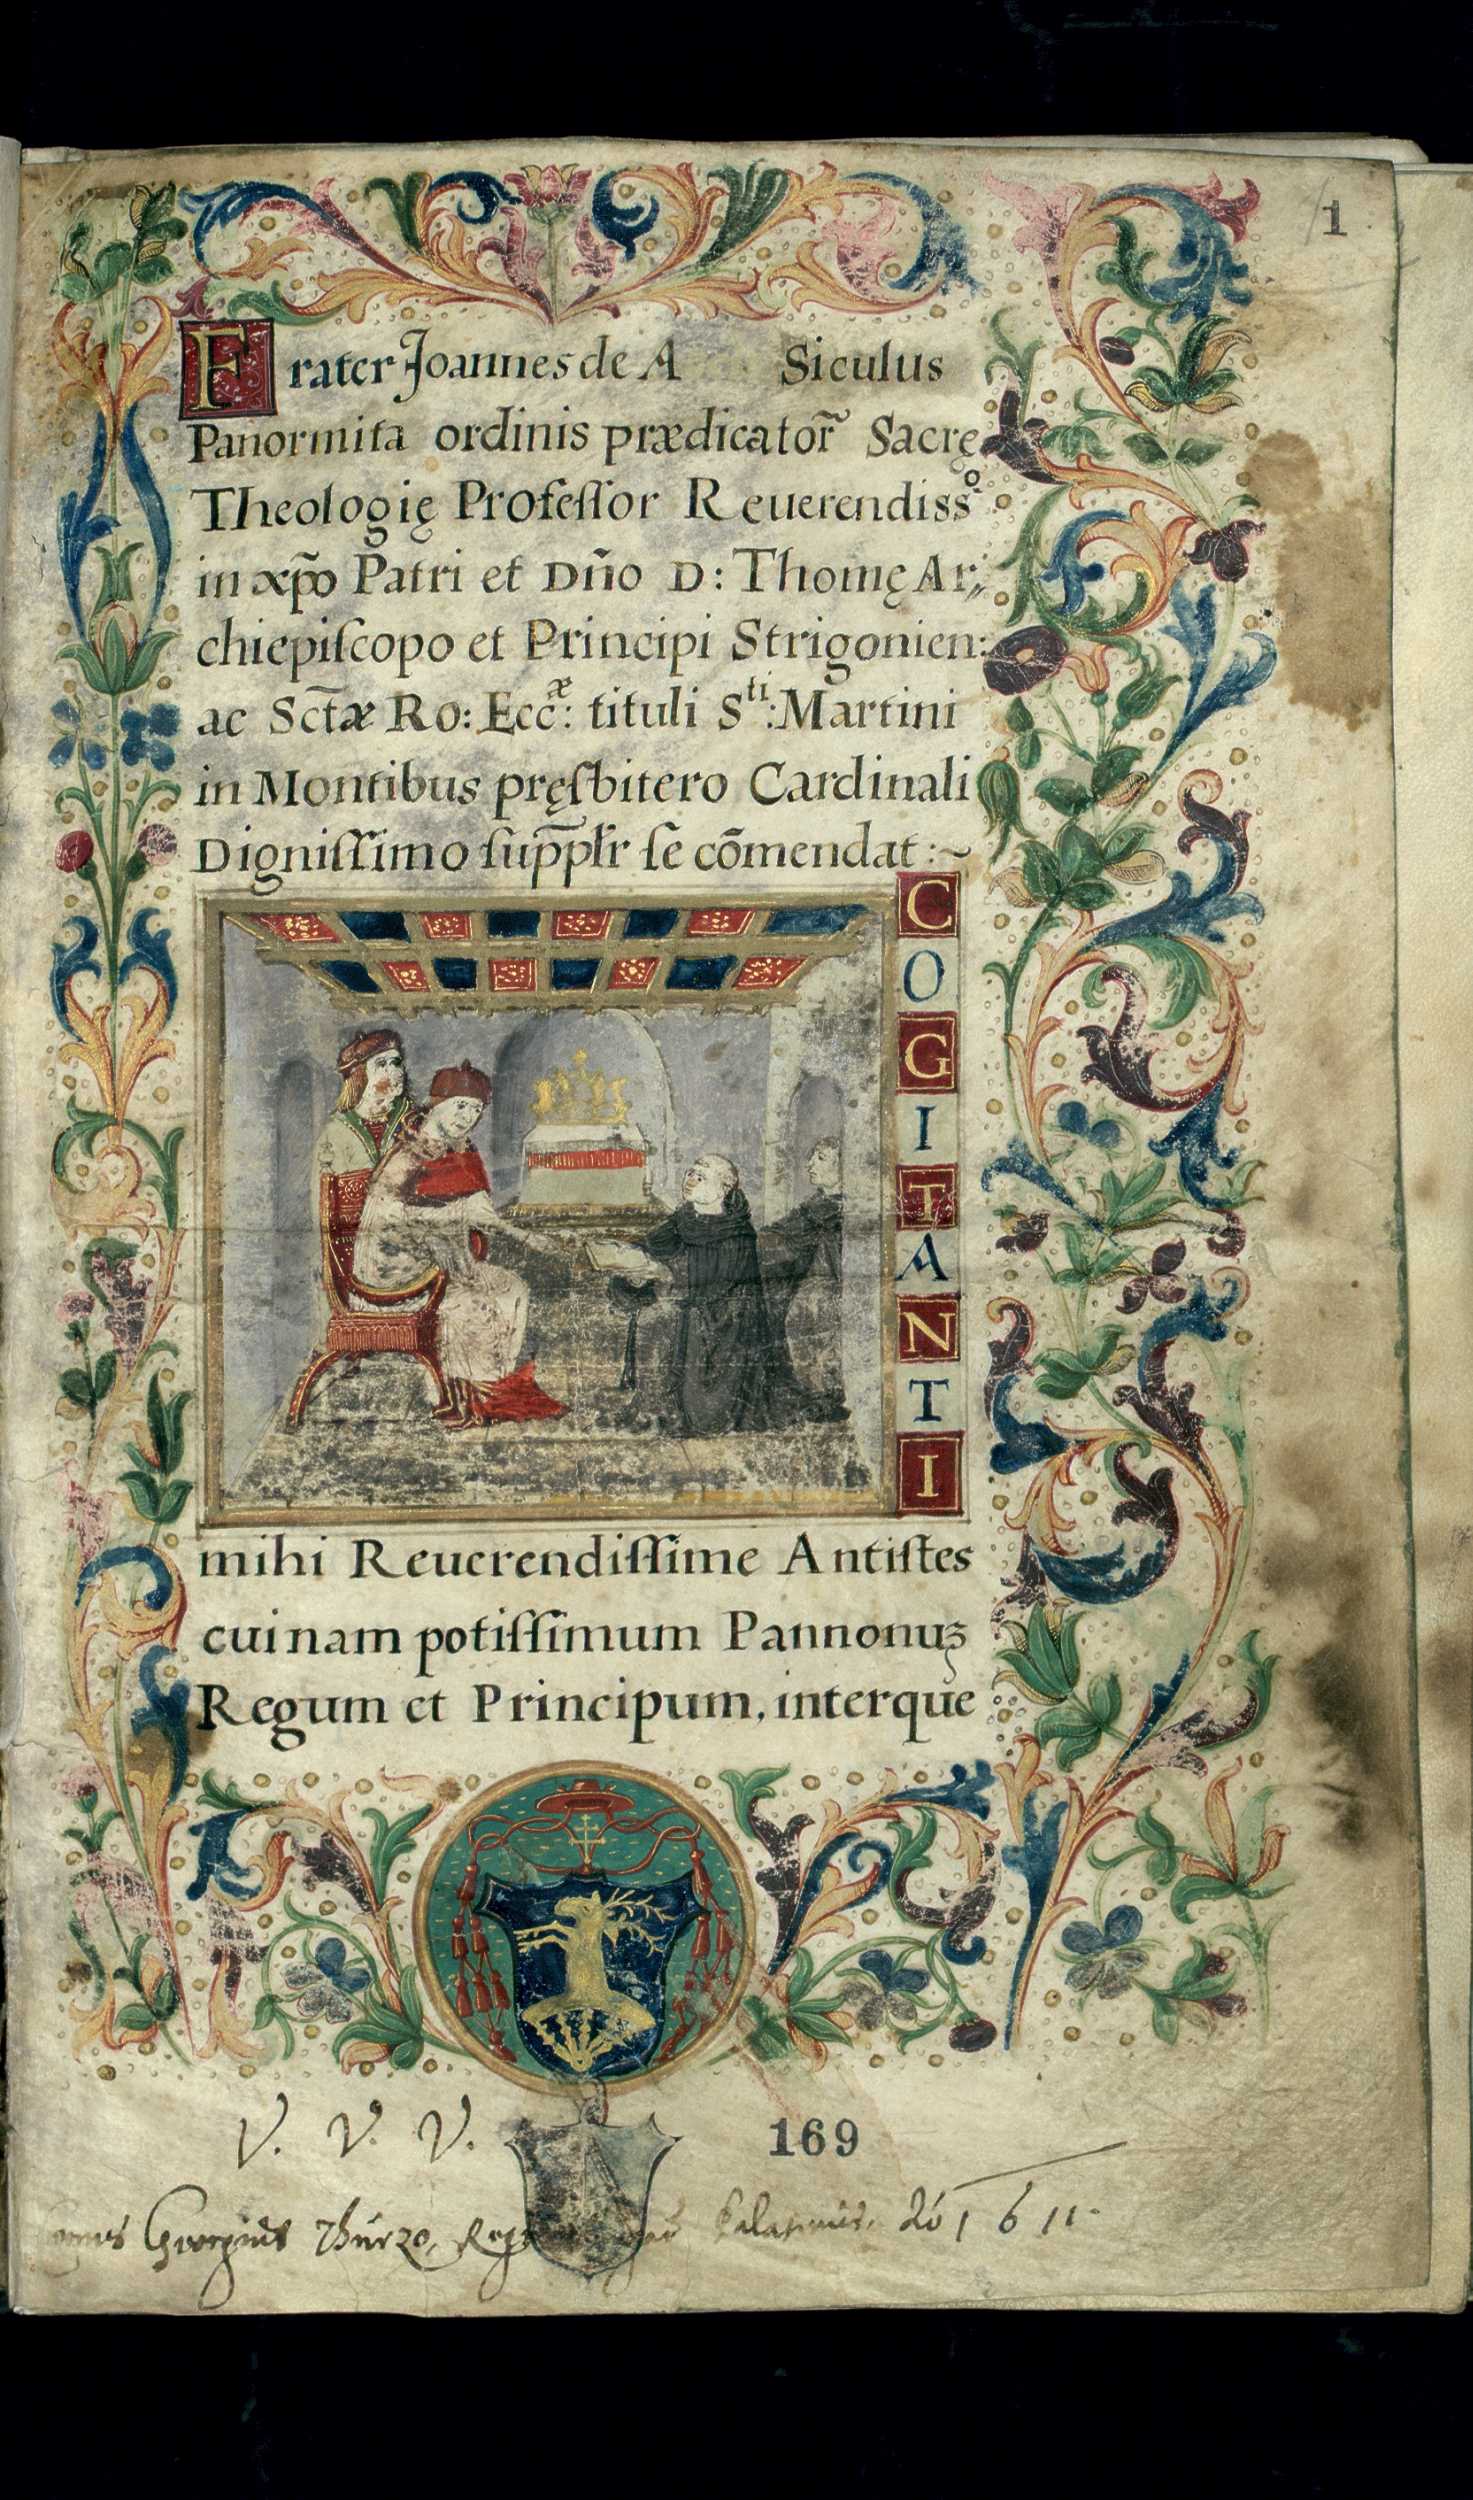 1
Frater Joannes de A Siculus
Panormita ordinis prædicator̃ Sacrę
Theologię Profeſſor Reuerendissº
in xp̃o Patri et Dño D: Thomę Ar⸗
chiepiſcopo et Principi Strigonien:
ac Sct̃æ Ro: Eccæ: tituli Sti: Martini
in Montibus pręſbitero Cardinali
Digniſſimo ſup̃pl̃r ſe cõmendat :~
COGITANTI
mihi Reuerendiſſime Antiſtes
cuinam potiſſimum Pannonuꝫ
Regum et Principum, interque
V. V. V.
169
Georgius Thurzo, Palatinus. 1611.